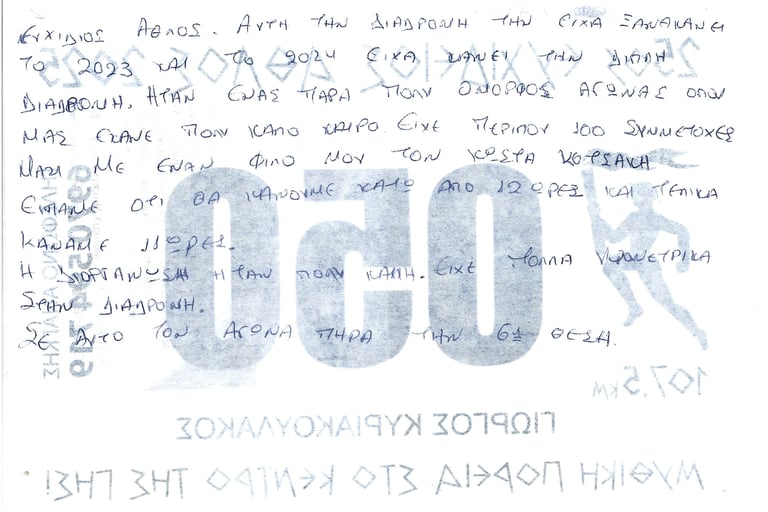 ΕΥΧΙΔΙΟΣ ΑΘΛΟΣ. ΑΥΤΗ ΤΗΝ ΔΙΑΔΡΟΜΗ ΤΗΝ ΕΙΧΑ ΞΑΝΑΚΑΝΕΙ
ΤΟ 2023 ΚΑΙ ΤΟ 2024 ΕΙΧΑ ΚΑΝΕΙ ΤΗΝ ΔΙΠΛΗ
ΔΙΑΔΡΟΜΗ. ΗΤΑΝ ΕΝΑΣ ΠΑΡΑ ΠΟΛΥ ΟΜΟΡΦΟΣ ΑΓΩΝΑΣ ΟΠΟΥ
ΜΑΣ ΕΚΑΝΕ ΠΟΛΥ ΚΑΛΟ ΚΑΙΡΟ. ΕΙΧΕ ΠΕΡΙΠΟΥ 100 ΣΥΜΜΕΤΟΧΕΣ
ΜΑΖΙ ΜΕ ΕΝΑΝ ΦΙΛΟ ΜΟΥ ΤΟΝ ΚΩΣΤΑ ΚΟΤΣΑΚΗ
ΕΙΠΑΜΕ ΟΤΙ ΘΑ ΚΑΝΟΥΜΕ ΚΑΤΩ ΑΠΟ 12 ΩΡΕΣ ΚΑΙ ΤΕΛΙΚΑ
ΚΑΝΑΜΕ 11 ΩΡΕΣ.
Η ΔΙΟΡΓΑΝΩΣΗ ΗΤΑΝ ΠΟΛΥ ΚΑΛΗ. ΕΙΧΕ ΠΟΛΛΑ ΥΨΟΜΕΤΡΙΚΑ
ΣΤΗΝ ΔΙΑΔΡΟΜΗ.
ΣΕ ΑΥΤΟ ΤΟΝ ΑΓΩΝΑ ΠΗΡΑ ΤΗΝ 6η ΘΕΣΗ.
25ος ΕΥΧΙΔΕΙΟΣ ΑΘΛΟΣ 2025
050
107,5 ΚΜ
ΓΙΩΡΓΟΣ ΚΥΡΙΑΚΟΥΛΑΚΟΣ
ΜΥΘΙΚΗ ΠΟΡΕΙΑ ΣΤΟ ΚΕΝΤΡΟ ΤΗΣ ΓΗΣ!